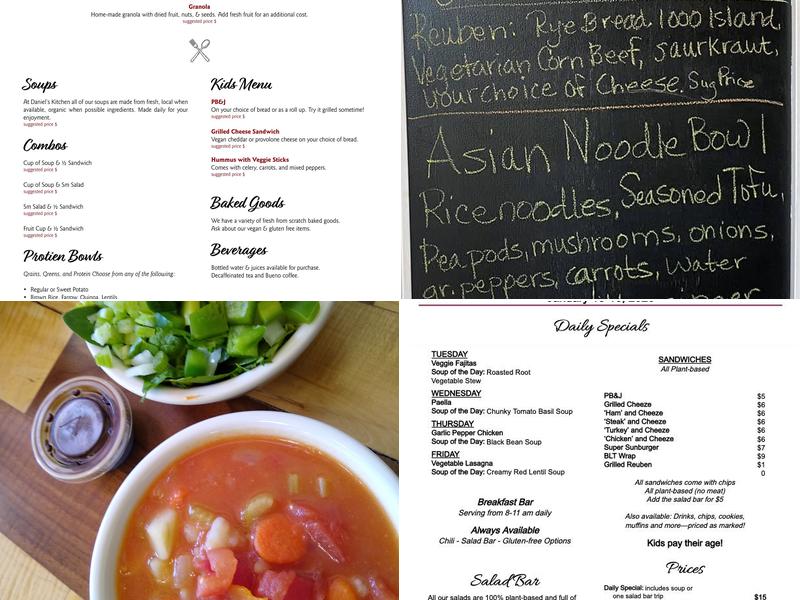 Granola
Home-made granola with dried fruit, nuts, & seeds. Add fresh fruit for an additional cost.
suggested price $
Soups
At Daniel's Kitchen all of our soups are made from fresh, local when
available, organic when possible ingredients. Made daily for your
enjoyment.
suggested price $
Combos
Cup of Soup & ½ Sandwich
suggested price $
Cup of Soup & Sm Salad
suggested price $
Sm Salad & ½ Sandwich
suggested price $
Fruit Cup & ½ Sandwich
suggested price $
Protien Bowls
Grains, Greens, and Protein Choose from any of the following:
• Regular or Sweet Potato
• Brown Rice, Farrow, Quinoa, Lentils
Kids Menu
PB&J
On your choice of bread or as a roll up. Try it grilled sometime!
suggested price $
Grilled Cheese Sandwich
Vegan cheddar or provolone cheese on your choice of bread.
suggested price $
Hummus with Veggie Sticks
Comes with celery, carrots, and mixed peppers.
suggested price $
Baked Goods
We have a variety of fresh from scratch baked goods.
Ask about our vegan & gluten free items.
Beverages
Bottled water & juices available for purchase.
Decaffeinated tea and Bueno coffee.
Reuben: Rye Bread, 1000 Island,
Vegetarian Corn Beef, Saurkraut,
your choice of Cheese. Sug Price
Asian Noodle Bowl
Rice noodles, Seasoned Tofu,
Pea pods, mushrooms, onions,
gr. peppers, carrots, water
Daily Specials
TUESDAY
Veggie Fajitas
Soup of the Day: Roasted Root
Vegetable Stew
WEDNESDAY
Paella
Soup of the Day: Chunky Tomato Basil Soup
THURSDAY
Garlic Pepper Chicken
Soup of the Day: Black Bean Soup
FRIDAY
Vegetable Lasagna
Soup of the Day: Creamy Red Lentil Soup
Breakfast Bar
Serving from 8-11 am daily
Always Available
Chili - Salad Bar - Gluten-free Options
Salad Bar
All our salads are 100% plant-based and full of
SANDWICHES
All Plant-based
PB&J $5
Grilled Cheeze $6
'Ham' and Cheeze $6
'Steak' and Cheeze $6
'Turkey' and Cheeze $6
'Chicken' and Cheeze $6
Super Sunburger $7
BLT Wrap $9
Grilled Reuben $1
0
All sandwiches come with chips
All plant-based (no meat)
Add the salad bar for $5
Also available: Drinks, chips, cookies,
muffins and more—priced as marked!
Kids pay their age!
Prices
Daily Special: includes soup or
one salad bar trip $15